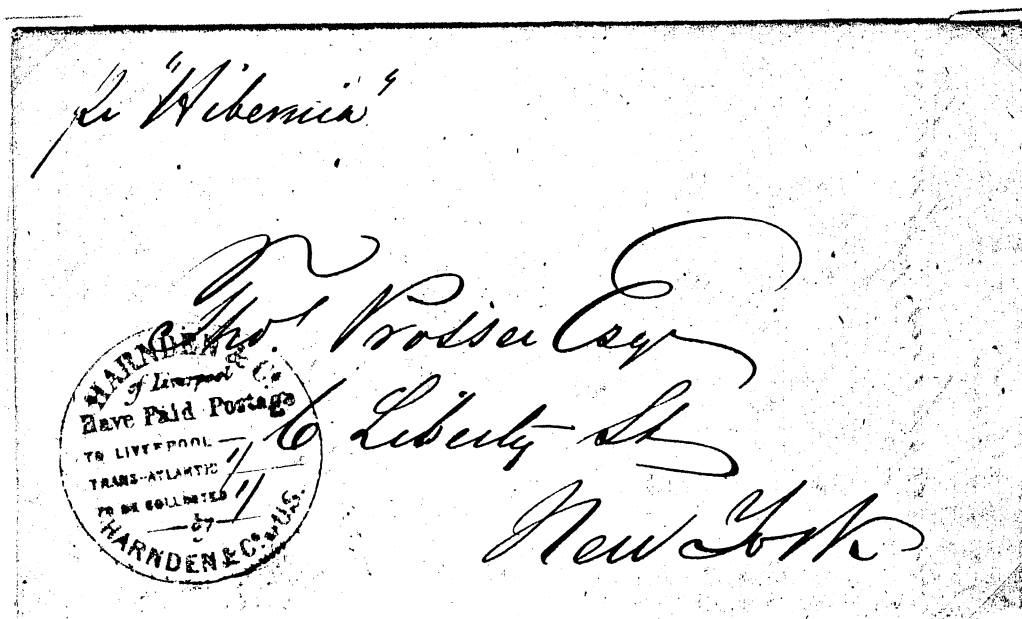 pr "Hibernia"
Thos. Prosser Esqr
6 Liberty St
New York
HARNDEN & Co.
of Liverpool
Have Paid Postage
TO LIVERPOOL — "
TRANS-ATLANTIC "
TO BE COLLECTED
by
HARNDEN & Co. U.S.